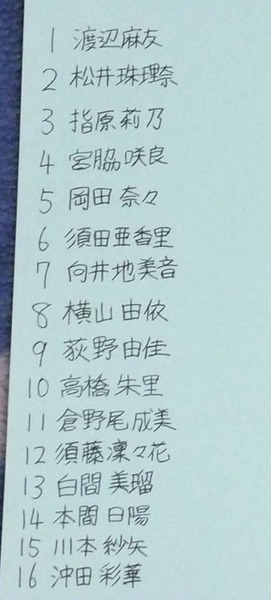 1 渡辺麻友
2 松井珠理奈
3 指原莉乃
4 宮脇咲良
5 岡田奈々
6 須田亜香里
7 向井地美音
8 横山由依
9 荻野由佳
10 高橋朱里
11 倉野尾成美
12 須藤凜々花
13 白間美瑠
14 本間日陽
15 川本紗矢
16 沖田彩華